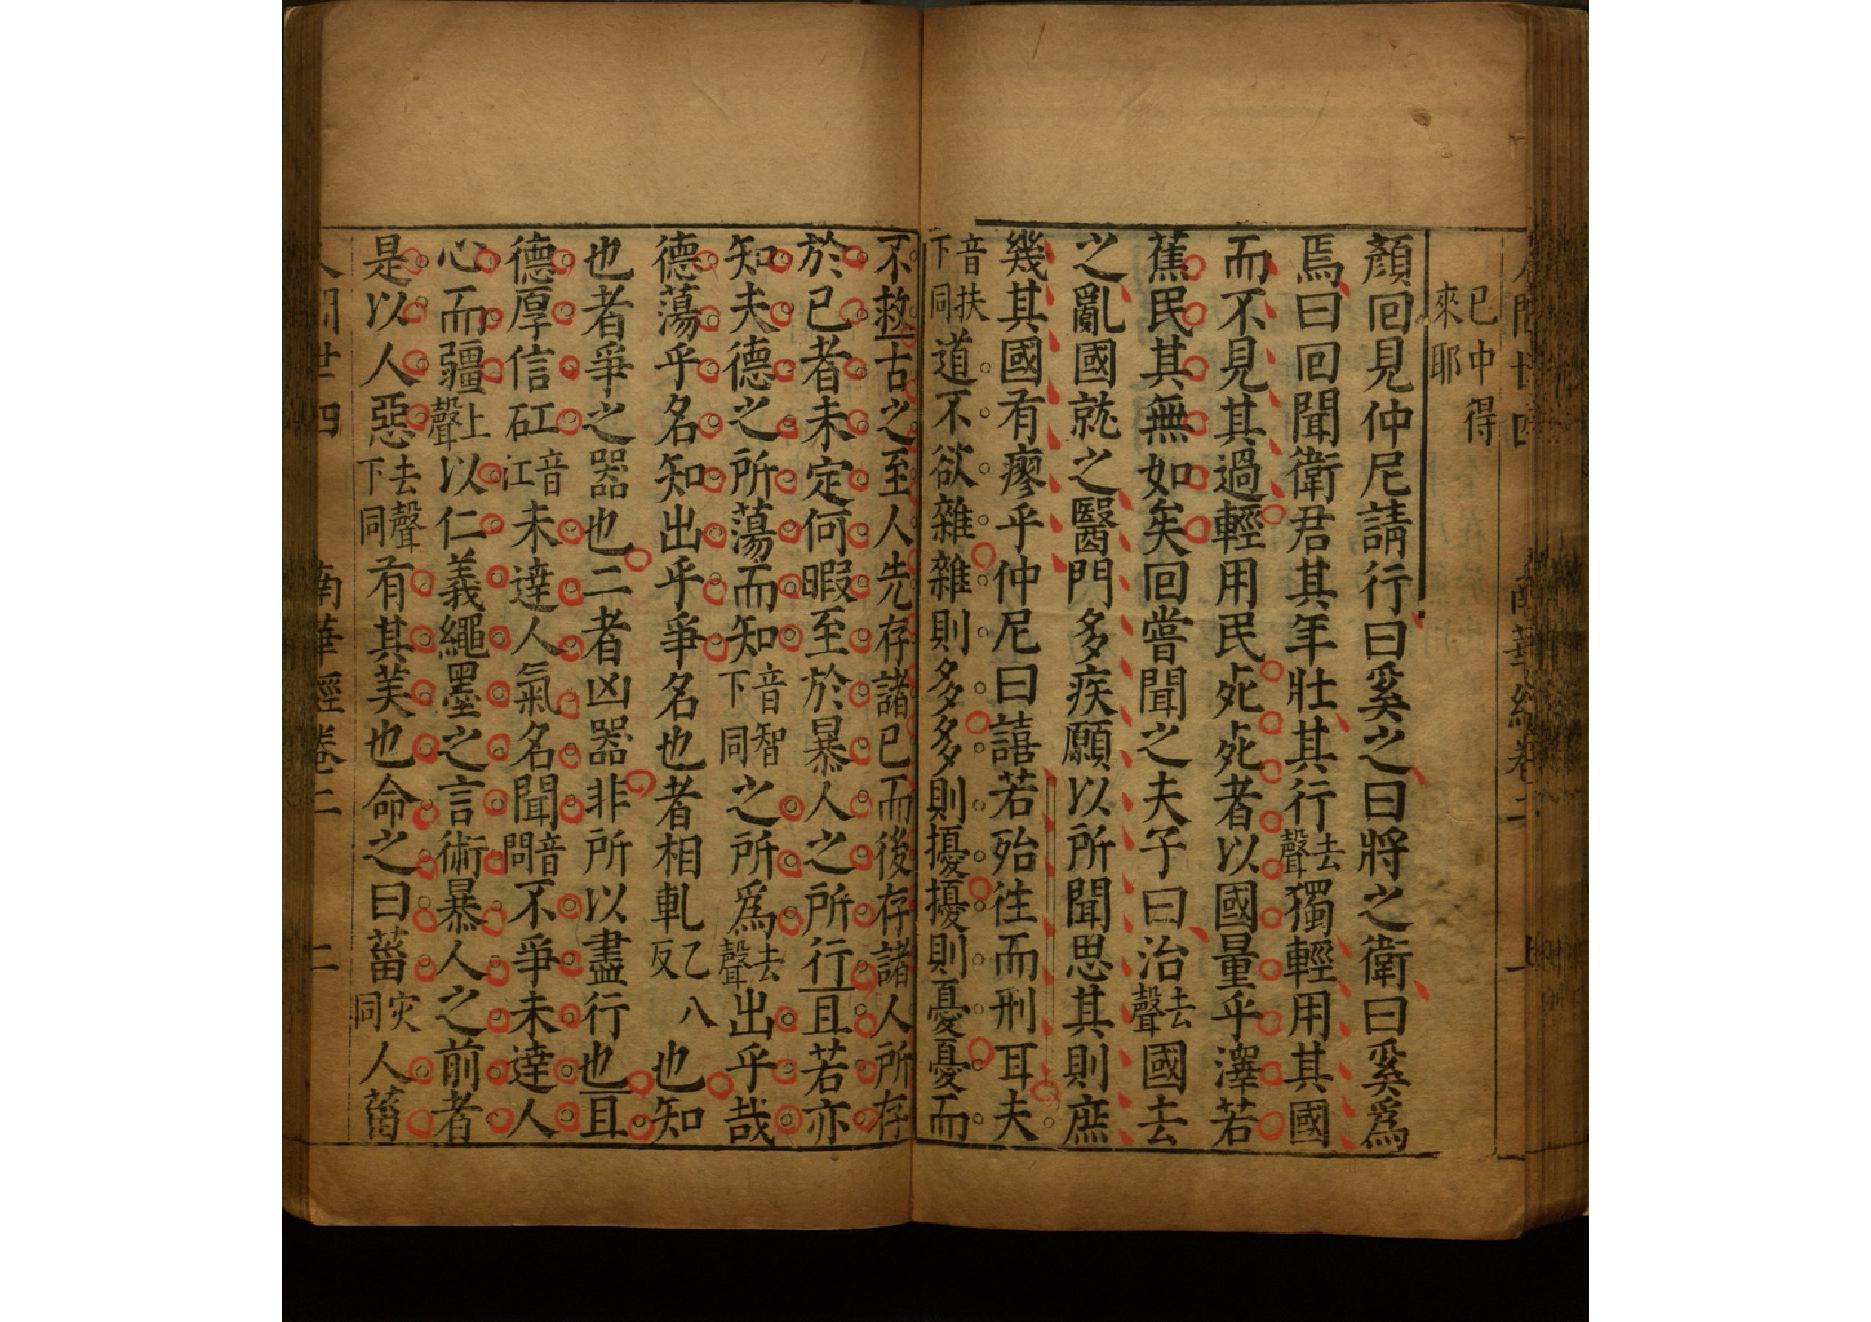 已中得
來耶
顏回見仲尼請行曰奚之曰將之衛曰奚爲
焉曰回聞衛君其年壯其行去聲獨輕用其國
而不見其過輕用民死死者以國量乎澤若
蕉民其無如矣回嘗聞之夫子曰治去聲國去
之亂國就之醫門多疾願以所聞思其則庶
幾其國有瘳乎仲尼曰譆若殆往而刑耳夫
音扶下同道不欲雜雜則多多則擾擾則憂憂而
不救古之至人先存諸已而後存諸人所存
於已者未定何暇至於暴人之所行且若亦
知夫德之所蕩而知音智下同之所爲去聲出乎哉
德蕩乎名知出乎爭名也者相軋乙八反也知
也者爭之器也二者凶器非所以盡行也且
德厚信矼音江未達人氣名聞音問不爭未達人
心而疆上聲以仁義繩墨之言術暴人之前者
是以人惡去聲下同有其美也命之曰菑灾同人菑
人間世四 南華經卷二 二